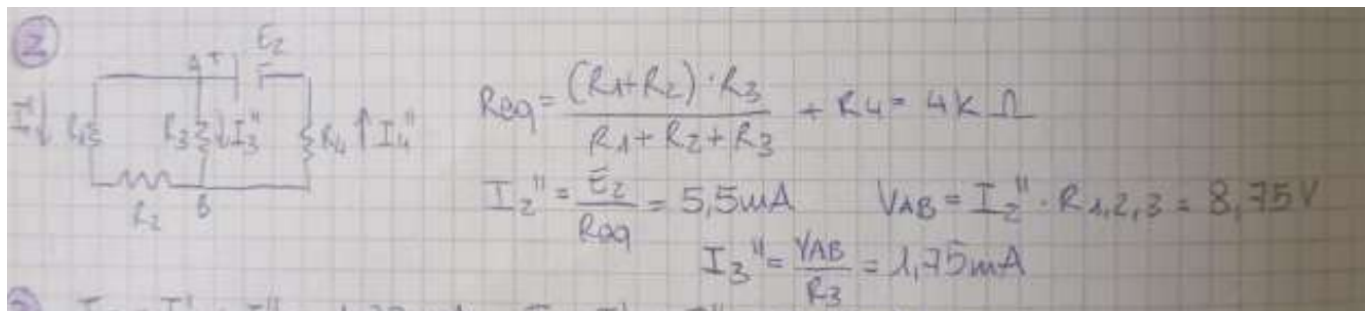 2
E2
A +
I1'' R1 R3 I3'' R4 I4''
R2 B
Req = (R1+R2)·R3 / R1+R2+R3 + R4 = 4kΩ
I2'' = E2/Req = 5,5mA VAB = I2''·R1,2,3 = 8,75V
I3'' = VAB/R3 = 1,75mA